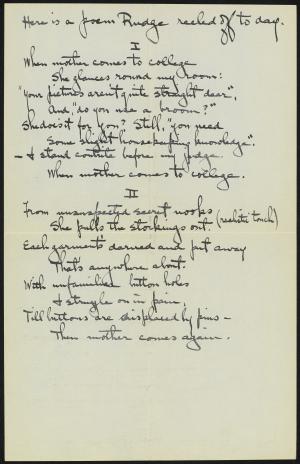 Here is a poem Rudge reeled off to day.
I
When mother comes to college
She glances round my room:
"Your pictures aren't quite straight dear",
And, "do you use a broom?"
She does it for you? Still, "you need
Some slight housekeeping knowledge".
- I stand contrite before my judge.
When mother comes to college.
II
From unsuspected secret nooks
She pulls the stockings out. (realistic touch)
Each garment's darned and put away
That's anywhere about.
With unfamiliar button holes
I struggle on in pain,
Till buttons are displaced by pins -
Then mother comes again.